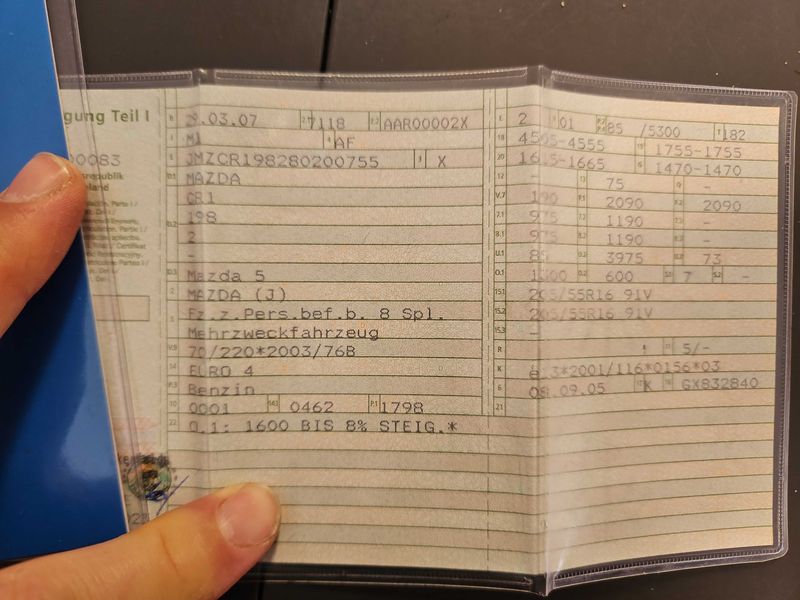 gung Teil I
0083
B 2▯.03.07 2.1 7118 2.2 AAR00002X
J M1 4 AF
E JMZCR198280200755 3 X
D.1 MAZDA
CR1
198
D.2 2
-
D.3 Mazda 5
2 MAZDA (J)
5 Fz.z.Pers.bef.b. 8 Spl.
Mehrzweckfahrzeug
V.9 70/220*2003/76B
14 EURO 4
P.3 Benzin
10 0001 14.1 0462 P.1 1798
22 O.1: 1600 BIS 8% STEIG.*
L 2 9 01 P.2 P.4 85 /5300 T 182
18 4505-4555 19 1755-1755
20 1615-1665 G 1470-1470
12 - 13 75 Q -
V.7 190 F.1 2090 F.2 2090
7.1 975 7.2 1190 7.3 -
8.1 975 8.2 1190 8.3 -
U.1 85 U.2 3975 U.3 73
O.1 1300 O.2 600 S.1 7 S.2 -
15.1 205/55R16 91V
15.2 205/55R16 91V
15.3 -
R 11 5/-
K e13*2001/116*0156*03
6 08.09.05 17 K 16 GX832840
21